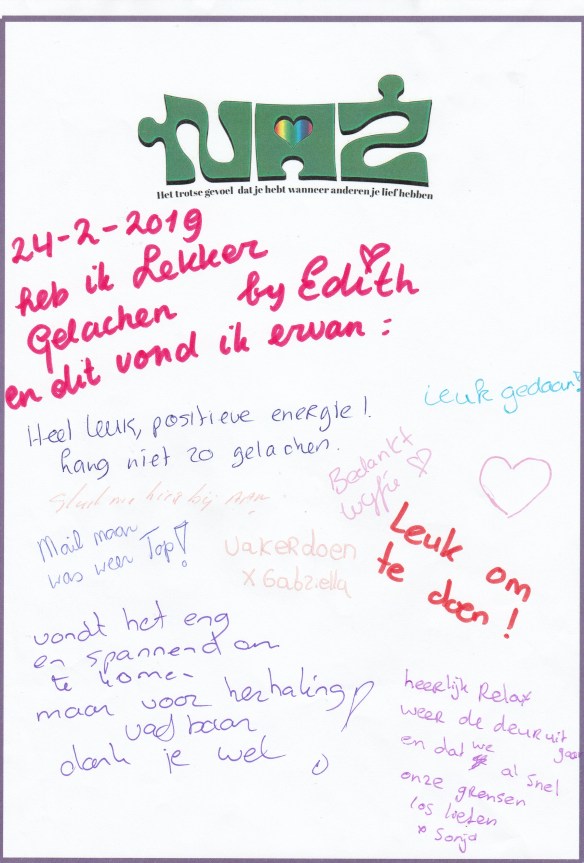 NAZ
Het trotse gevoel dat je hebt wanneer anderen je lief hebben
24-2-2019
heb ik Lekker
Gelachen by Edith
en dit vond ik ervan :
leuk gedaan!
Heel leuk, positieve energie!
lang niet zo gelachen.
Bedankt
wyfie
hier bij
Mail maar
was weer Top!
Vaker doen
x Gabriella
Leuk om
te doen!
vondt het eng
en spannend om
te komen
maar voor herhaling
vadbaar
dank je wel
heerlijk Relax
weer de deur uit gaan
en dat we al snel
onze grensen
los lieten
x Sonja